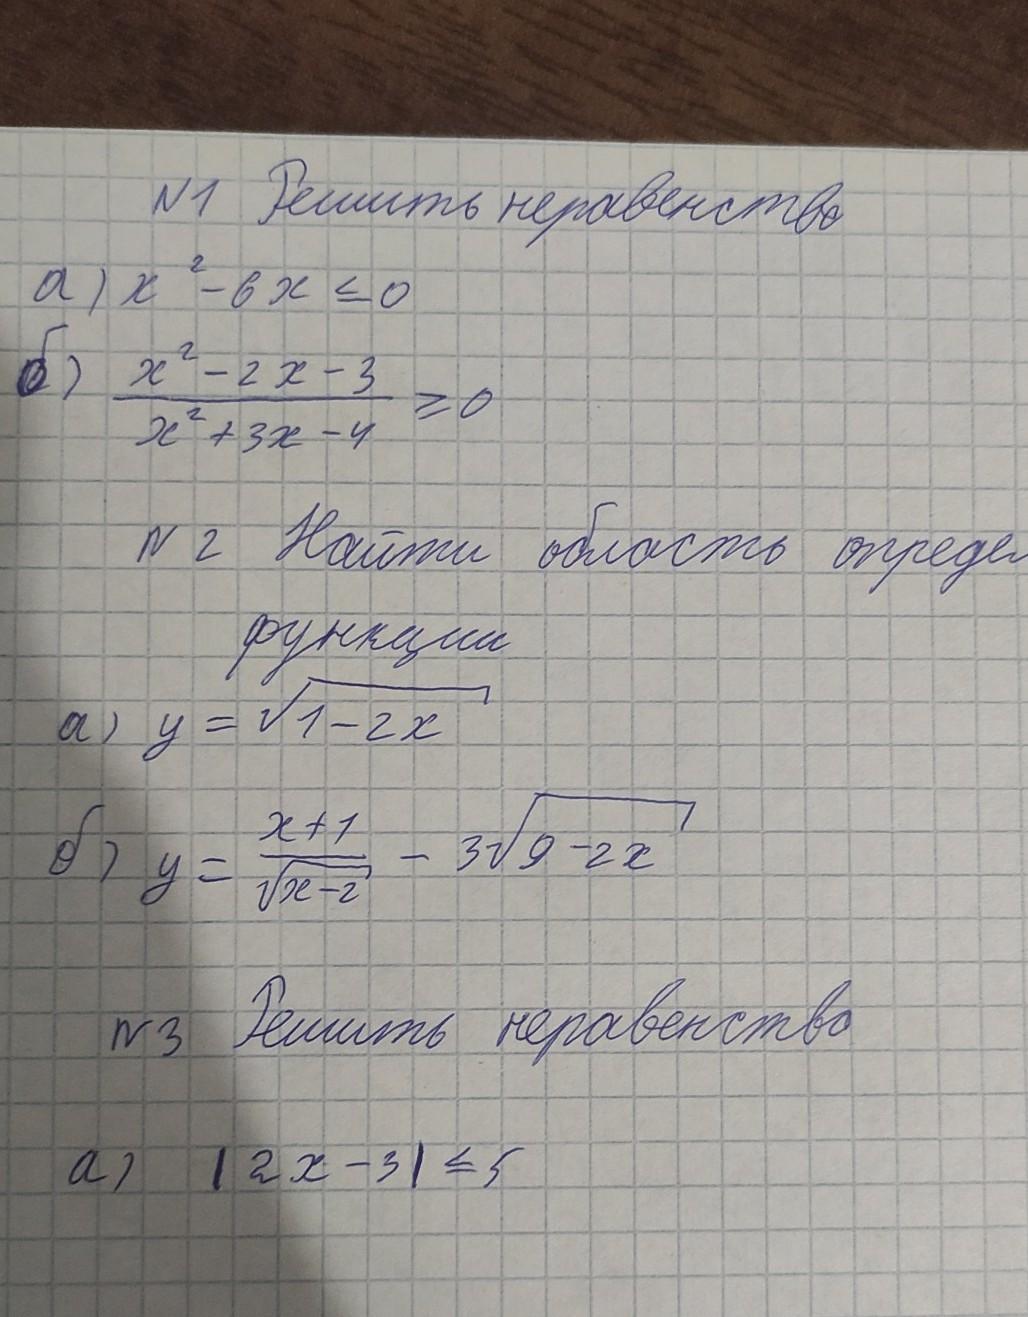 N1 Решить неравенство
а) x² - 6x ≤ 0
б) (x² - 2x - 3)/(x² + 3x - 4) ≥ 0
N2 Найти область определ
функции
а) y = √(1 - 2x)
б) y = (x + 1)/√(x - 2) - 3√(9 - 2x)
N3 Решить неравенство
а) |2x - 3| ≤ 5